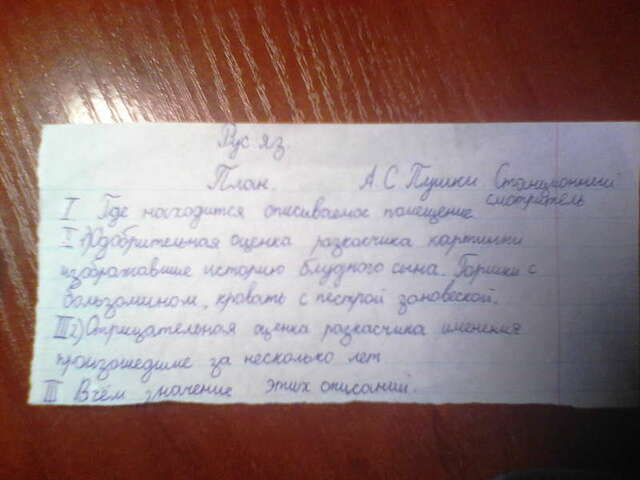 Рус яз.
План. А. С Пушки Станционный
смотритель
I Где находится описываемое помещение
II 1) Одобрительная оценка разказчика картинки
изображавшие историю блудного сына. Горшки с
бользомином, кровать с пестрой зановеской.
III 2) Отрицательная оценка разказчика именения
произошедшие за несколько лет
III В чём значение этих описаний.